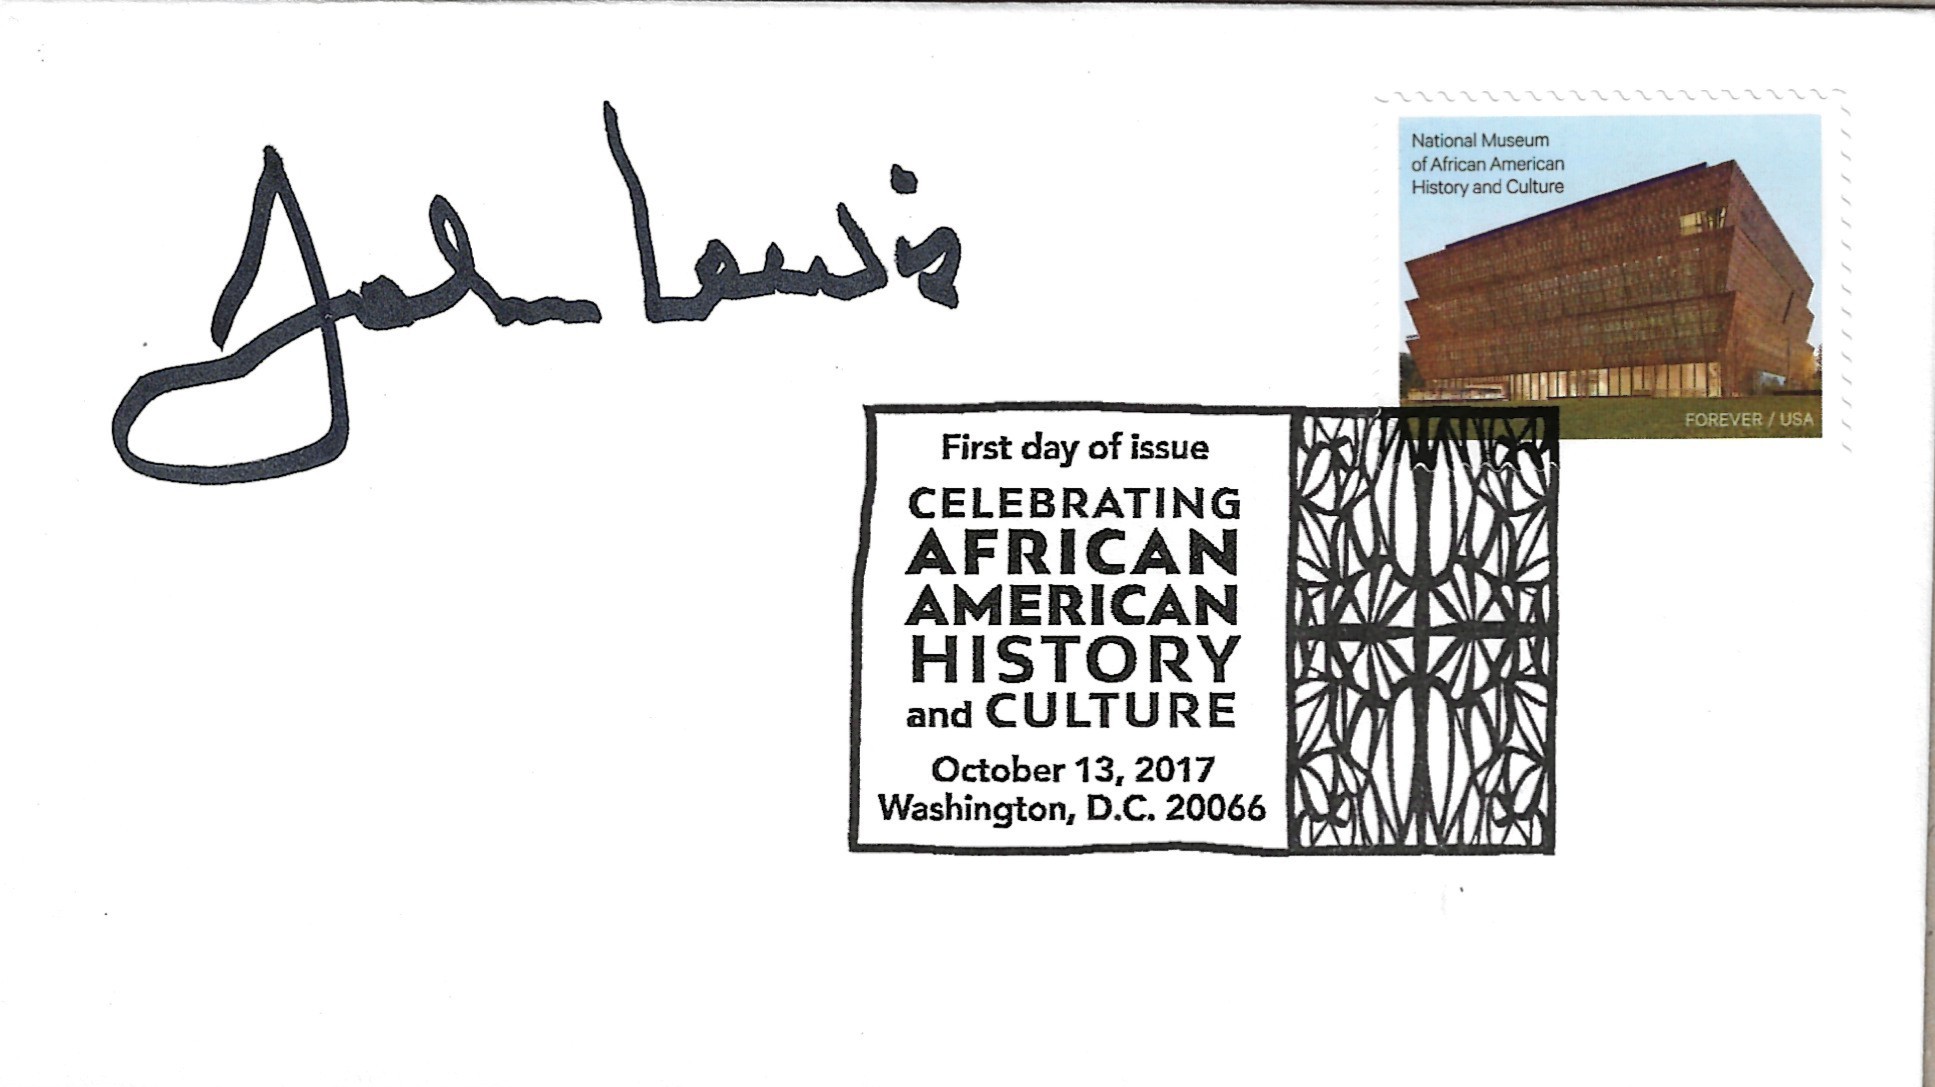 John Lewis
National Museum
of African American
History and Culture
FOREVER / USA
First day of issue
CELEBRATING
AFRICAN
AMERICAN
HISTORY
and CULTURE
October 13, 2017
Washington, D.C. 20066